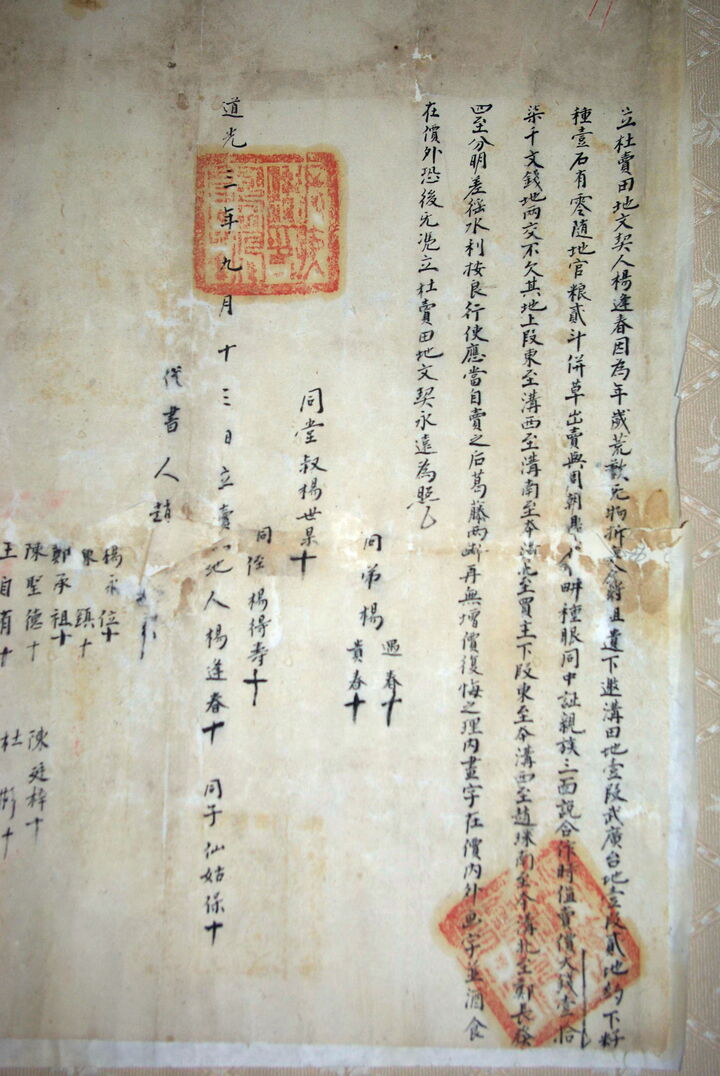 立杜賣田地文契人楊逢春因為年歲荒歉无物折遺下遨溝田地壹段武廣台地壹段貳地約下籽
種壹石有零隨地官粮貳斗併草出賣與周朝畊種眼同中証親族三面說合作時值賣價大錢壹拾
柒千文錢地兩交不欠其地上段東至溝西至溝南至本溝北至買主下段東至本溝西至趙南至本溝北至鄭長
四至分明差徭水利按良行使應當自賣之后葛藤兩断再無增價復悔之理內畫字在價內外画字並酒食
在價外恐後无憑立杜賣田地文契永遠為照
同弟楊 遇春十 貴春十
同堂叔楊世杲十
同侄楊得壽十
道光三年九月十三日立賣地人楊逢春十 同子仙姑保十
代書人趙
楊永位十
鎮十
鄭承祖十
陳堅德十 陳廷梓十
王自有十 杜十